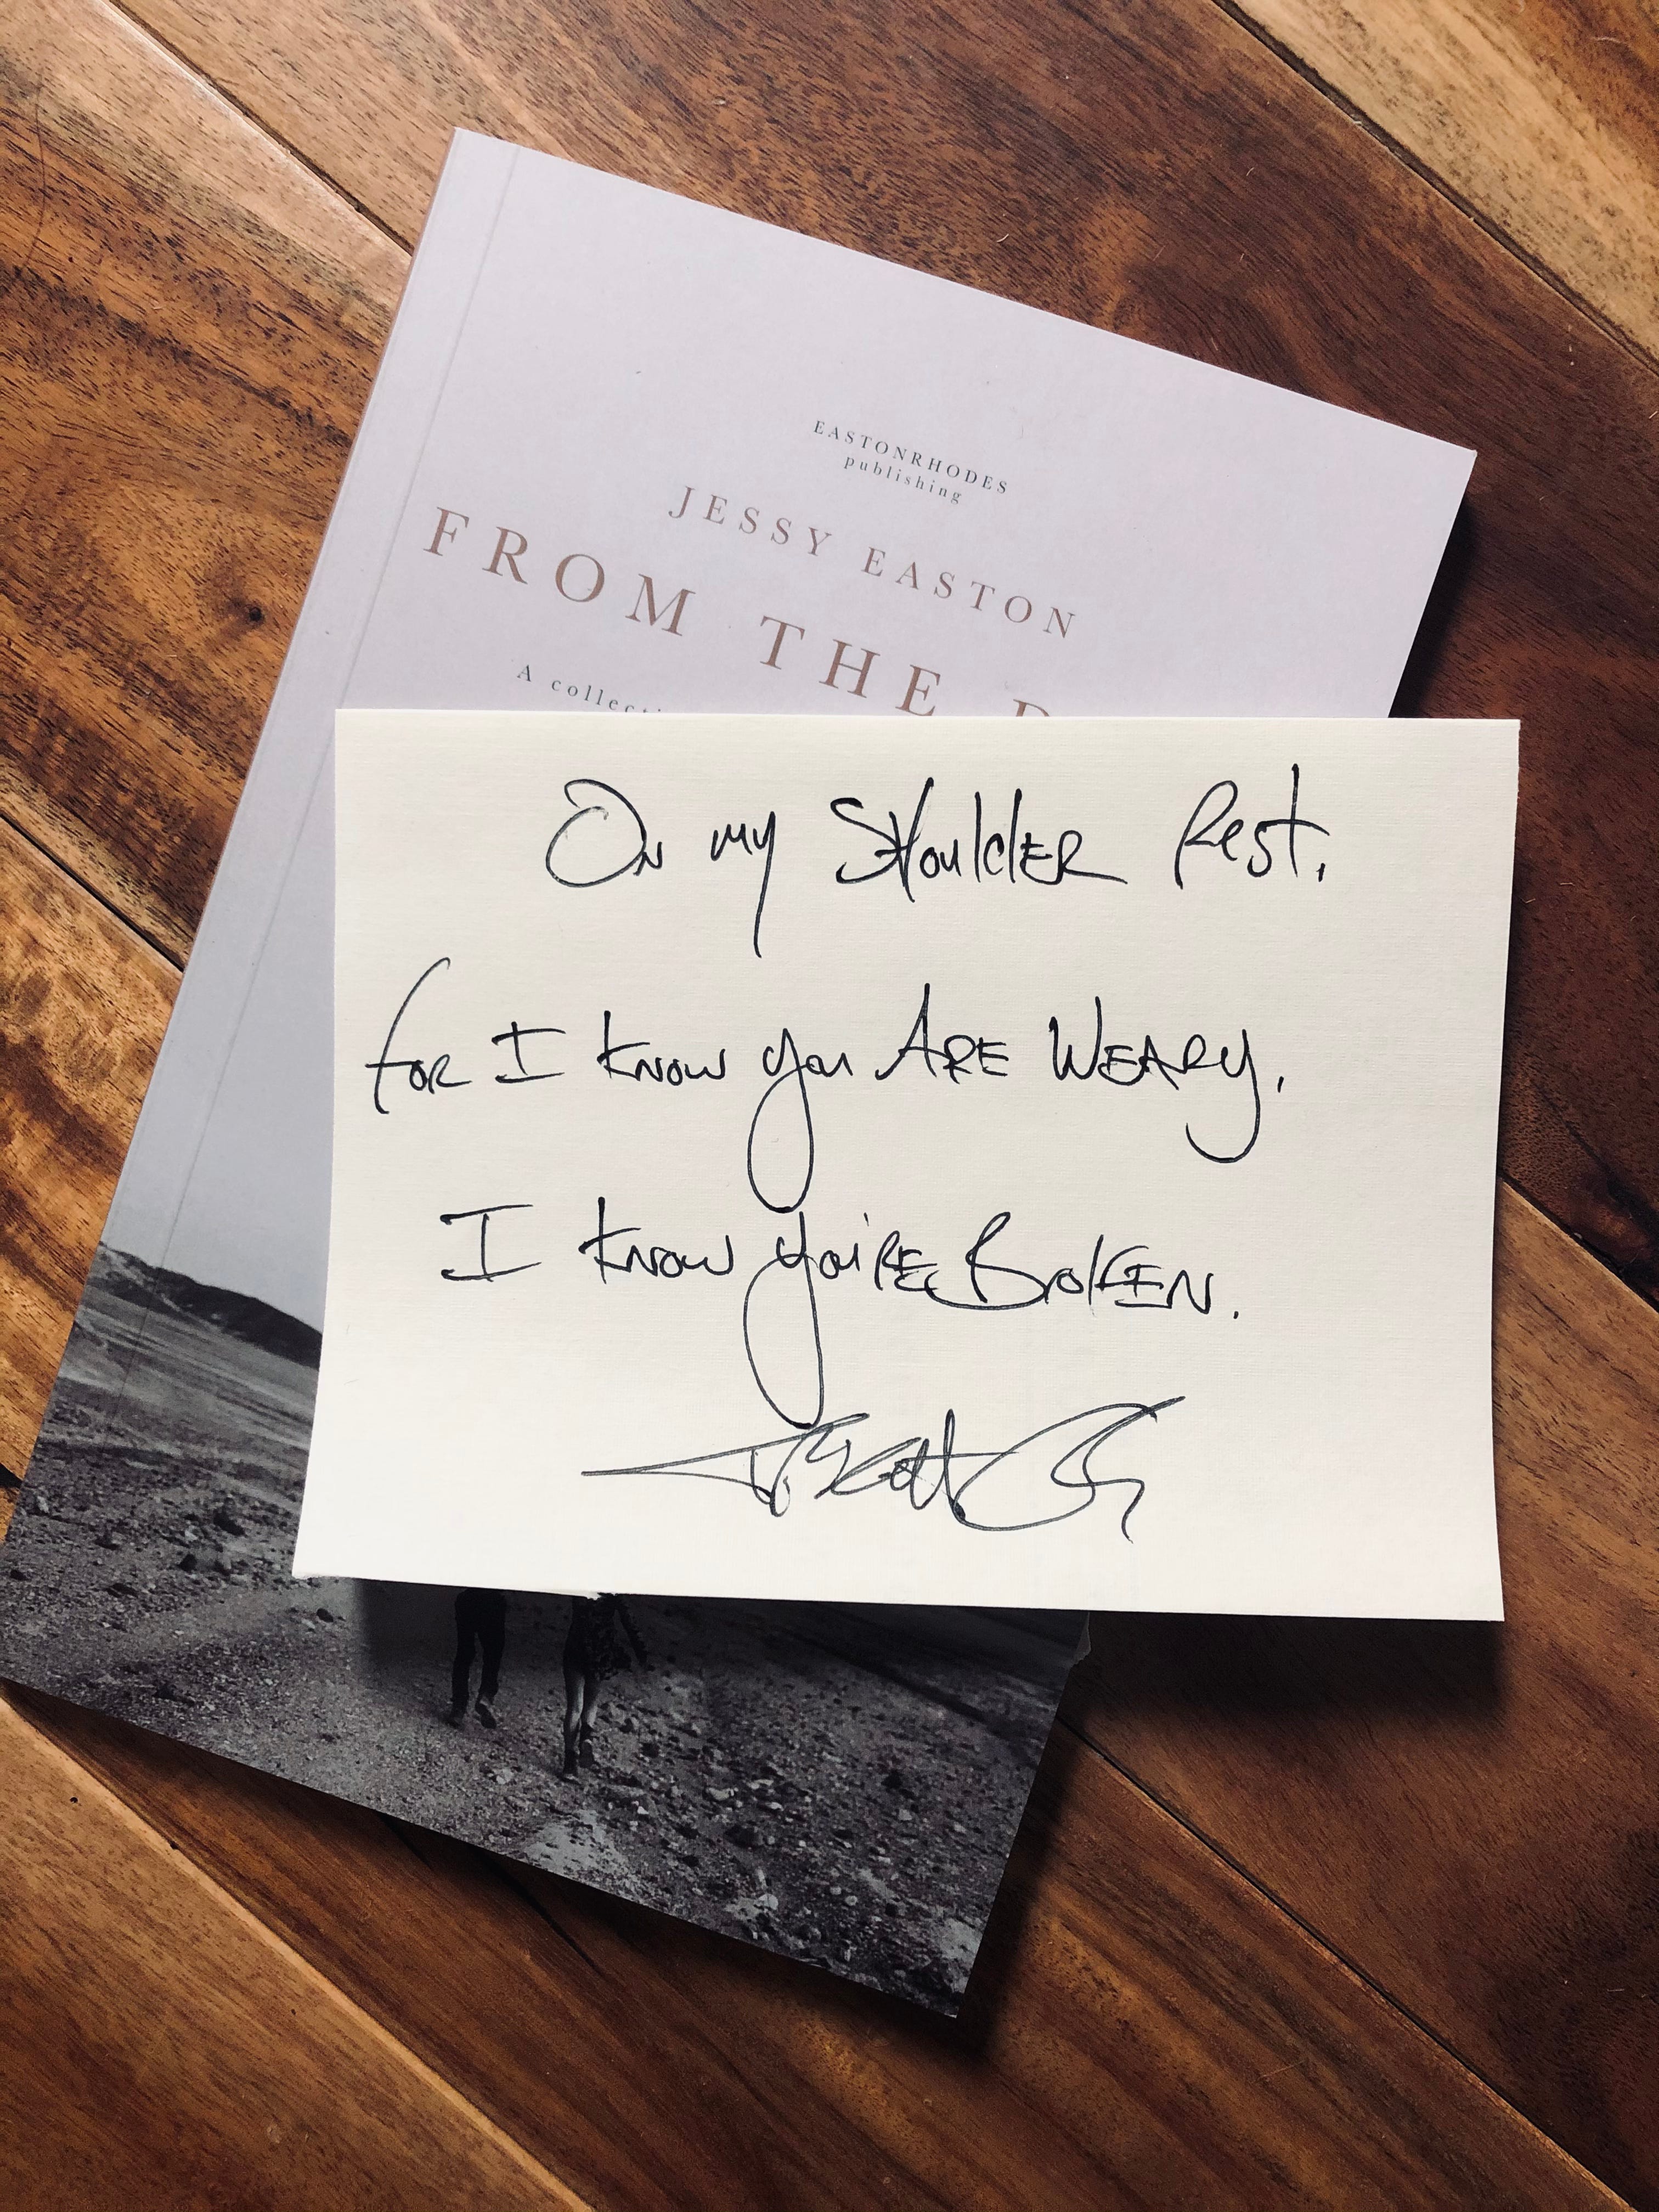 EASTONRHODES
publishing
JESSY EASTON
FROM THE
A
On my Shoulder Rest.
For I know you ARE WEARY.
I know you'RE BROKEN.